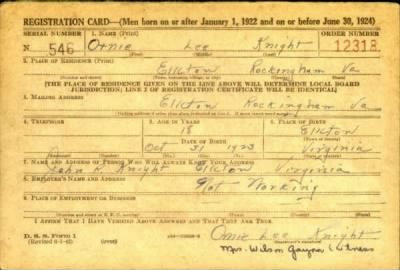 REGISTRATION CARD—(Men born on or after January 1, 1922 and on or before June 30, 1924)
SERIAL NUMBER 1. NAME (Print) ORDER NUMBER
N 546 Ornie Lee Knight 12318
(First) (Middle) (Last)
2. PLACE OF RESIDENCE (Print)
Elkton Rockingham Va
[THE PLACE OF RESIDENCE GIVEN ON THE LINE ABOVE WILL DETERMINE LOCAL BOARD
JURISDICTION; LINE 2 OF REGISTRATION CERTIFICATE WILL BE IDENTICAL]
3. MAILING ADDRESS
Elkton Rockingham Va
4. TELEPHONE 5. AGE IN YEARS 6. PLACE OF BIRTH
18 Elkton
DATE OF BIRTH
Oct 31 1923 Virginia
7. NAME AND ADDRESS OF PERSON WHO WILL ALWAYS KNOW YOUR ADDRESS
John K. Knight Elkton Virginia
8. EMPLOYER'S NAME AND ADDRESS
Not Working
9. PLACE OF EMPLOYMENT OR BUSINESS
I AFFIRM THAT I HAVE VERIFIED ABOVE ANSWERS AND THAT THEY ARE TRUE.
D. S. S. FORM 1
(Revised 6-1-42) Ornie Lee Knight
Mrs. Wilson Witness